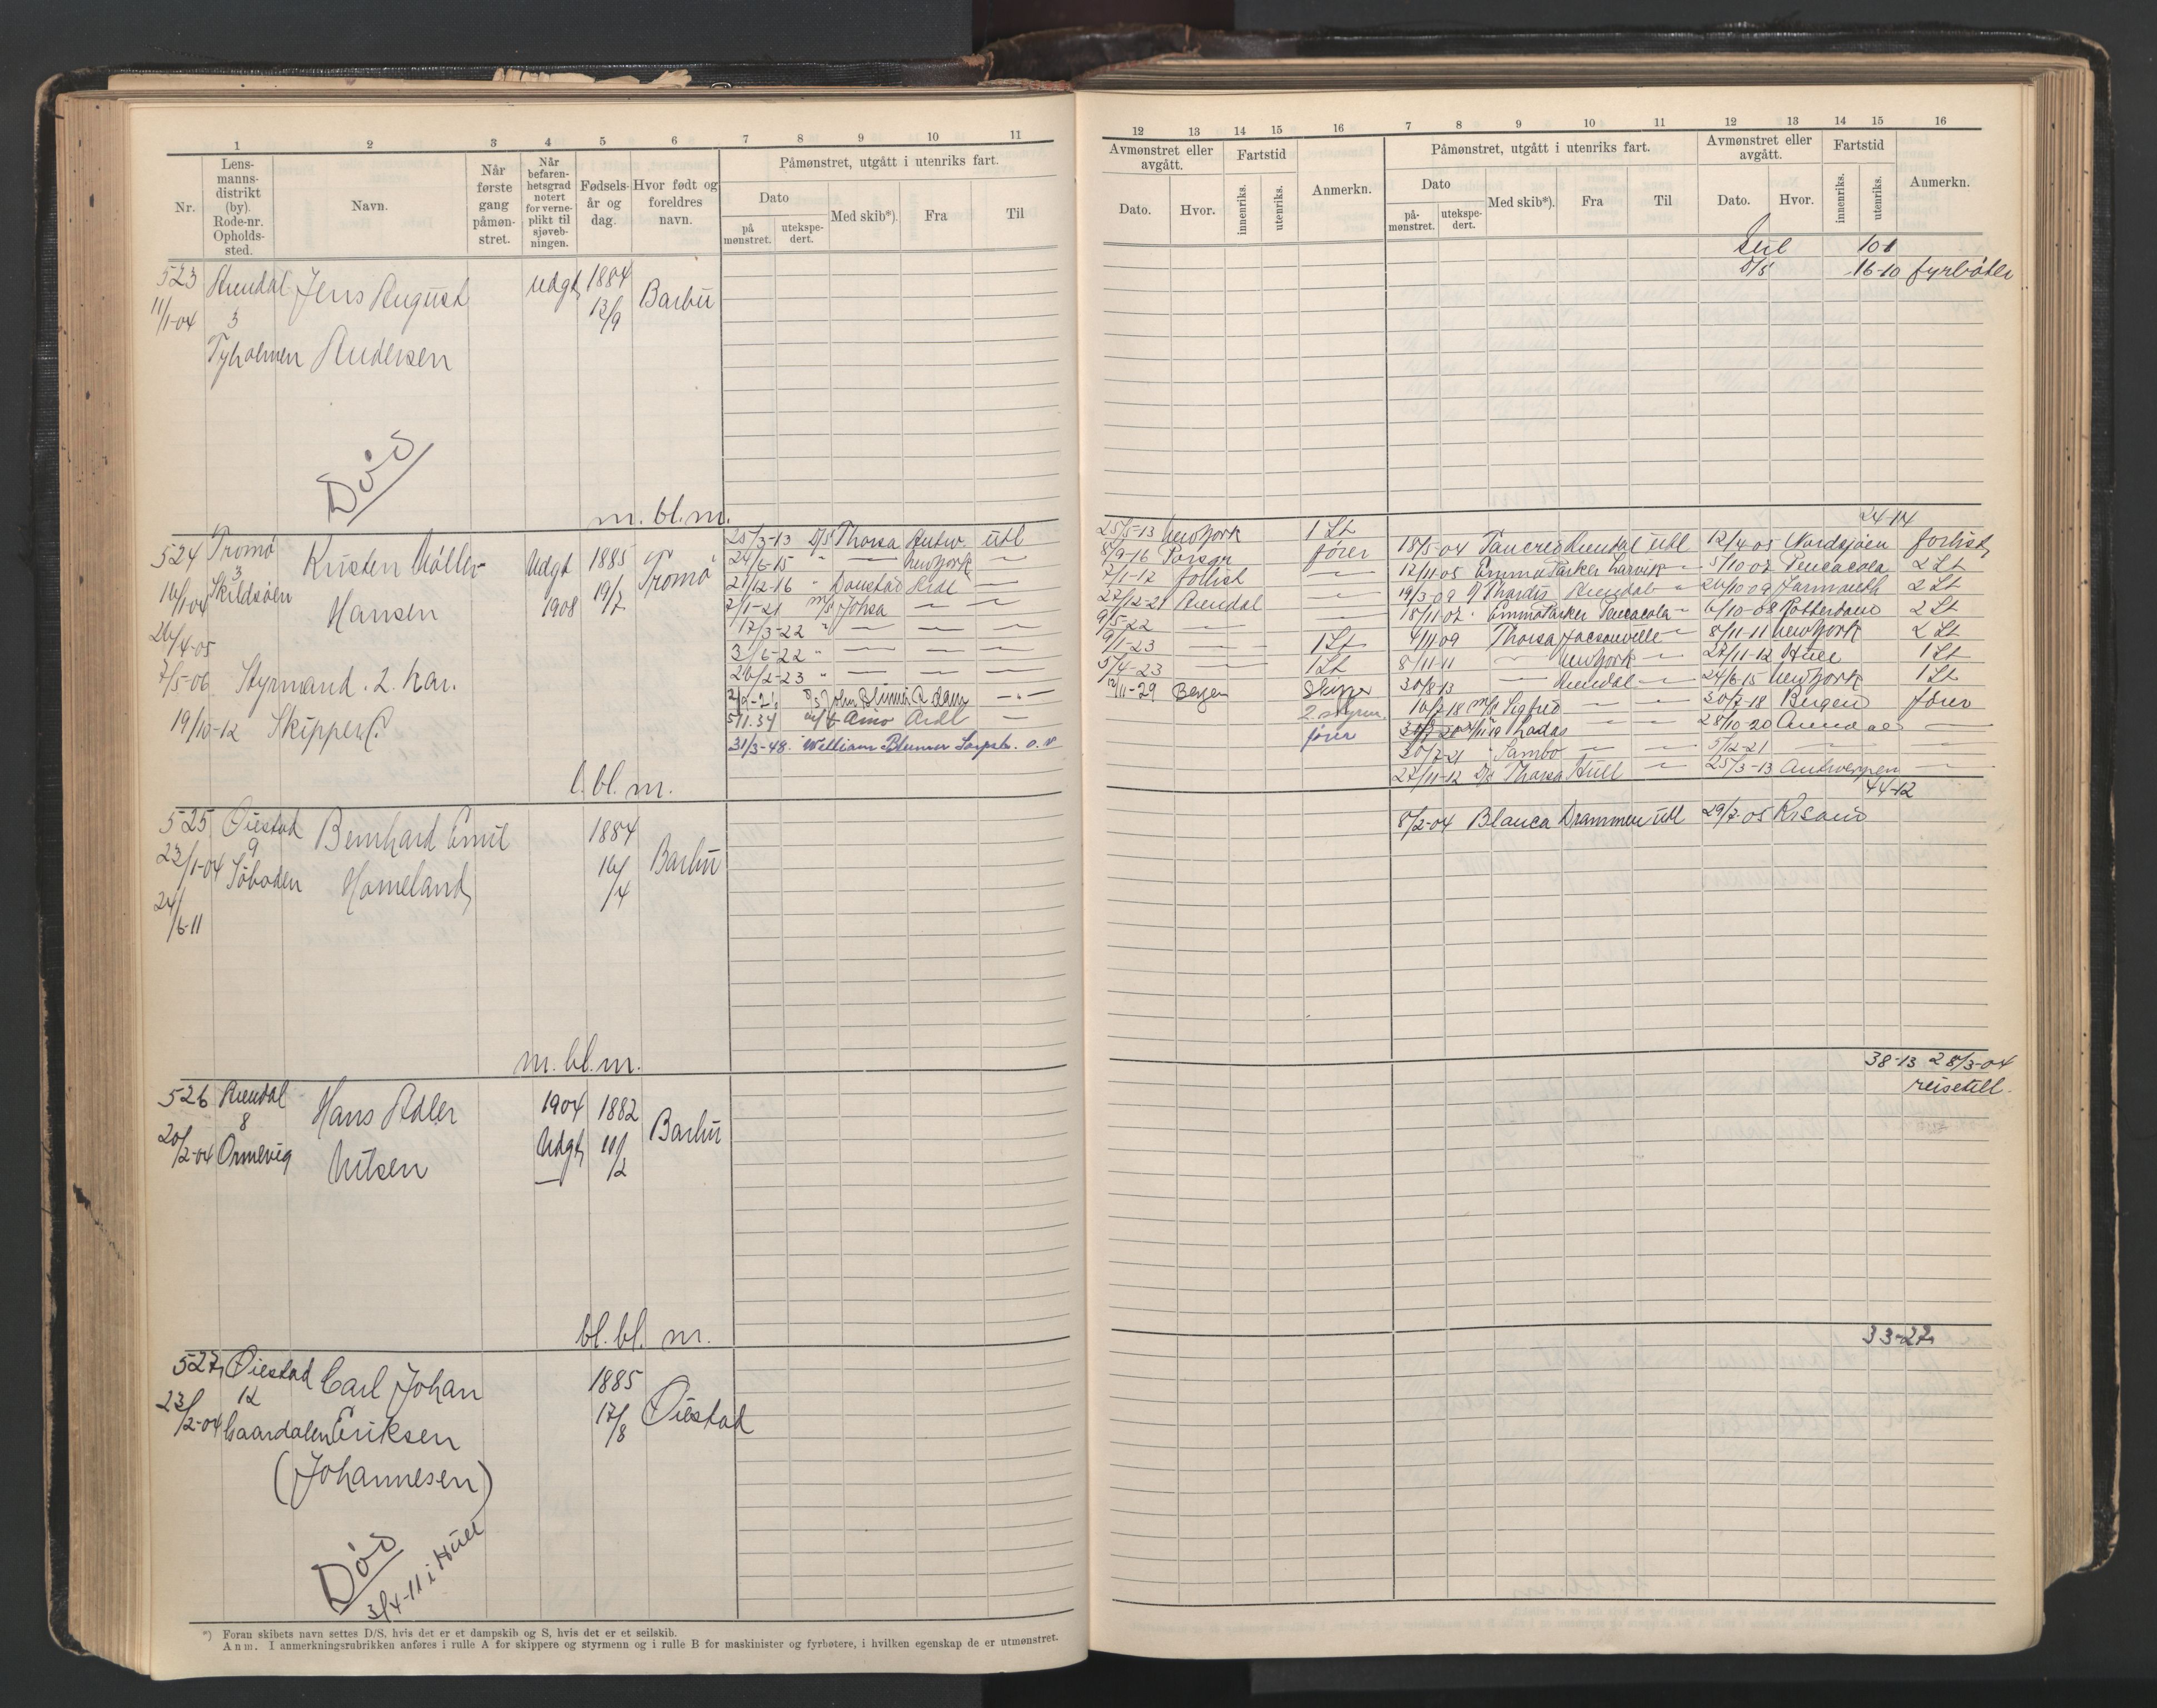 1 2 3 4 5 6 7 8 9 10 11
Nr.
Lens-
manns-
distrikt
(by).
Rode-nr.
Opholds-
sted.
Navn.
Når
første
gang
påmøn-
stret.
Når
befaren-
hetsgrad
notert
for verne-
plikt til
sjøveb-
ningen.
Fødsels-
år og
dag.
Hvor født og
foreldres
navn.
Påmønstret, utgått i utenriks fart.
Dato
på
mønstret.
utekspe-
dert.
Med skib*).
Fra
Til
523 Arendal Jens August Udgt 1884 Barbu
11/1-04 3 12/9
Tyholmen Andersen
Død
m. bl. m.
524 Tromø Kristen Møller Udgt 1885 Tromø
16/1-04 3 Skildsøen Hansen 1908 19/7
26/4-05
7/5-06 Styrmand. 2. har.
19/10-12 Skipper C.
25/3-13 D/S Thorsa Antw. utl
24/6-15 " — New York —
21/12-16 " Danstad Ardl —
7/1-21 m/s Johsa — —
17/3-22 " — — —
3/6-22 " — — —
26/2-23 " — — —
D/S John Blumer A dam —"—
5/1.34 Arno Ardl —
31/3-48. William Blumer Sarpsb. o. v
l. bl. m.
525 Øiestad Bernhard Emil 1884 Barbu
23/1-04 9 Søboden Homeland 16/4
24/6-11
m. bl. m.
526 Arendal Hans Adler 1904 1882 Barbu
20/2-04 8 Ormevig Nilsen Udgt 10/2
bl. bl. m.
527 Øiestad Carl Johan 1885 Øiestad
23/2-04 12 Gaardalen Eriksen 17/8
(Johannesen)
Død
3/4-11 i Hull
*) Foran skibets navn settes D/S, hvis det er et dampskib og S, hvis det er et seilskib.
Anm. I anmerkningsrubrikken anføres i rulle A for skippere og styrmenn og i rulle B for maskinister og fyrbøtere, i hvilken egenskap de er utmønstret.
12 13 14 15 16 7 8 9 10 11 12 13 14 15 16
Avmønstret eller
avgått.
Dato.
Hvor.
Fartstid
innenriks.
utenriks.
Anmerkn.
Påmønstret, utgått i utenriks fart.
Dato
på-
mønstret.
utekspe-
dert.
Med skib*).
Fra
Til
Avmønstret eller
avgått.
Dato.
Hvor.
Fartstid
innenriks.
utenriks.
Anmerkn.
seil 101
D/S 16-10 fyrbøter
24-14
25/3-13 New York 1 St
8/9-16 Porsgr fører
7/1-17 forlist —
27/12-21 Arendal —
9/5-22 — —
9/1-23 — 1 St
5/4-23 — 1 St
12/11-29 Bergen Skipper
2. styrm.
fører
18/5-04 Tancred Arendal utl 12/4 05 Nordsjøen forlist
12/11-05 Emma Parker Larvik — 5/10 07 Pencacola 2 St
19/3-09 Thordis Arendal — 20/10 09 Jarmouth 2 St
18/11-07 " Emma Parker Pencacola — 6/10-08 Rotterdam 2 St
4/11 09 Thorsa Jacsonville — 8/11-11 New York 2 St
8/11-11 — New York — 27/11-12 Hull 1 St
30/8-13 — Arendal — 24/6-15 New York 1 St
10/7-18 m/s Sigfred — — 30/7-18 Bergen fører
Ladas — — 28/10-20 Arendal —
30/7-21 " Sambo — — 5/12-21 — —
27/11-12 D/S Thorsa Hull — 25/3-13 Antwerpen —
44-12
8/2-04 Blanca Drammen utl 29/7-05 Risør
38-13 28/3-04
reisetill.
33-27